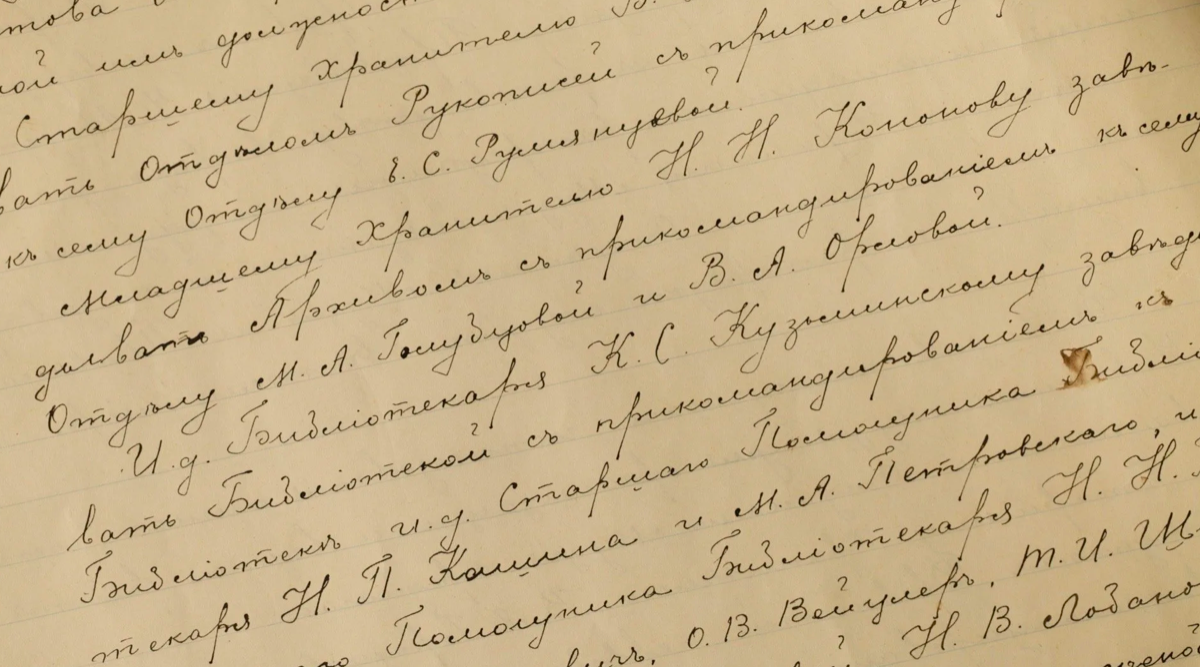 ной имъ должнос
Старшему Хранителю В.
вать Отдѣломъ Рукописей съ прикоманд
къ сему Отдѣлу Е. С. Румянцевой.
Младшему Хранителю Н. Н. Кононову завѣ-
дывать Архивомъ съ прикомандированіемъ къ сему
Отдѣлу М. А. Голубцовой и В. А. Орловой.
И. д. Библіотекаря К. С. Кузьминскому завѣды
вать Библіотекой съ прикомандированіемъ къ
Библіотекѣ и. д. Старшаго Помощника Библіо
текаря Н. П. Кашина и М. А. Петровскаго, и
Помощника Библіотекаря Н. Н.
О. В. Вейцлеръ, Т. И. Щ
Н. В. Лобано